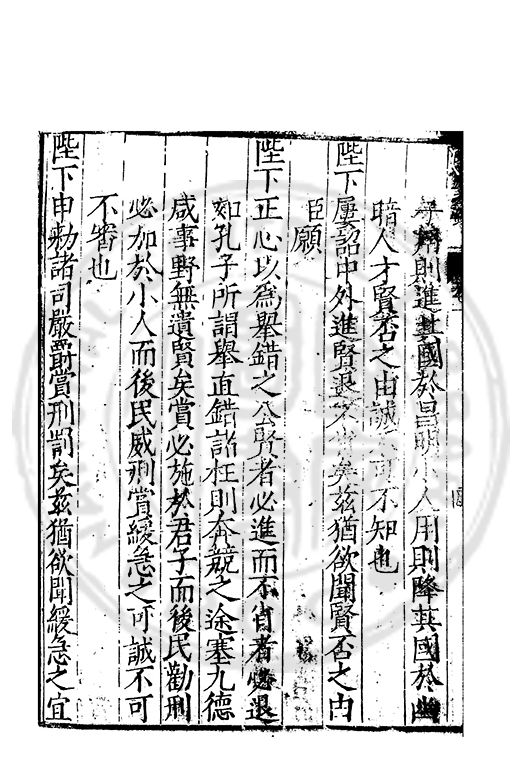 則進其國於昌明小人用則降其國於幽
暗人才賢否之由誠不可不知也
陛下屢詔中外進賢退不肖矣茲猶欲聞賢否之由
臣願
陛下正心以為舉錯之公賢者必進而不肖者必退
如孔子所謂舉直錯諸枉則奔競之途塞九德
咸事野無遺賢矣賞必施於君子而後民勸刑
必加於小人而後民威刑賞緩急之可誠不可
不審也
陛下申勑諸司嚴爵賞刑罰矣茲猶欲聞緩急之宜